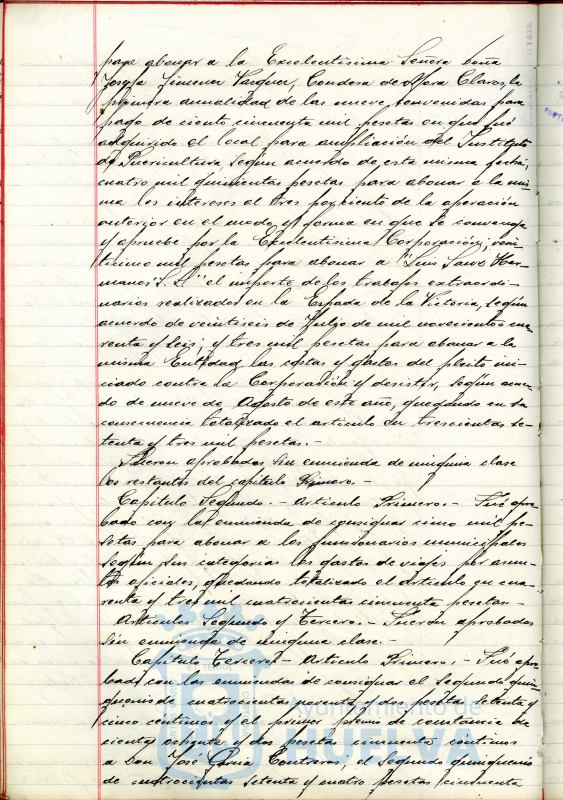 para abonar a la Excelentísima Señora Doña
Josefa Jimenez Vazquez, Condesa de Mora Claros, la
primera anualidad de las nueve convenidas para
pago de ciento cincuenta mil pesetas en que fué
adquirido el local para ampliación del Instituto
de Puericultura, según acuerdo de esta misma fecha;
cuatro mil quinientas pesetas para abonar a la mis-
ma los intereses al tres por ciento de la operación
anterior en el modo y forma en que se convenga
y apruebe por la Excelentísima Corporación; vein-
ticinco mil pesetas para abonar a "Luis Sanz Her-
manos S.L." el importe de los trabajos extraordi-
narios realizados en la Espada de la Victoria, según
acuerdo de veintiseis de Julio de mil novecientos cua-
renta y seis; y tres mil pesetas para abonar a la
misma Entidad las costas y gastos del pleito ini-
ciado contra la Corporación y desistir, según acuer-
do de nueve de Agosto de este año, quedando en su
consecuencia totalizado el articulo en trescientas se-
tenta y tres mil pesetas.-
Fueron aprobados sin enmienda de ninguna clase
los restantes del capitulo Primero.-
Capitulo Segundo.- Articulo Primero.- Fué apro-
bado con la enmienda de consignar cinco mil pe-
setas para abonar a los funcionarios municipales
según sus categorias los gastos de viajes por asun-
tos oficiales, quedando totalizado el articulo en cua-
renta y tres mil cuatrocientas cincuenta pesetas.-
Articulos Segundo y Tercero.- Fueron aprobados
sin enmienda de ninguna clase.-
Capitulo Tercero.- Articulo Primero.- Fué apro-
bado con las enmiendas de consignar el segundo quin-
quenio de cuatrocientas noventa y pesetas setenta y
cinco centimos y el primer premio de constancia de
ciento ochenta y dos pesetas cincuenta centimos
a Don José Garcia Contreras; el segundo quinquenio
de cuatrocientas setenta y cuatro pesetas cincuenta
Ayuntamiento de
HUELVA